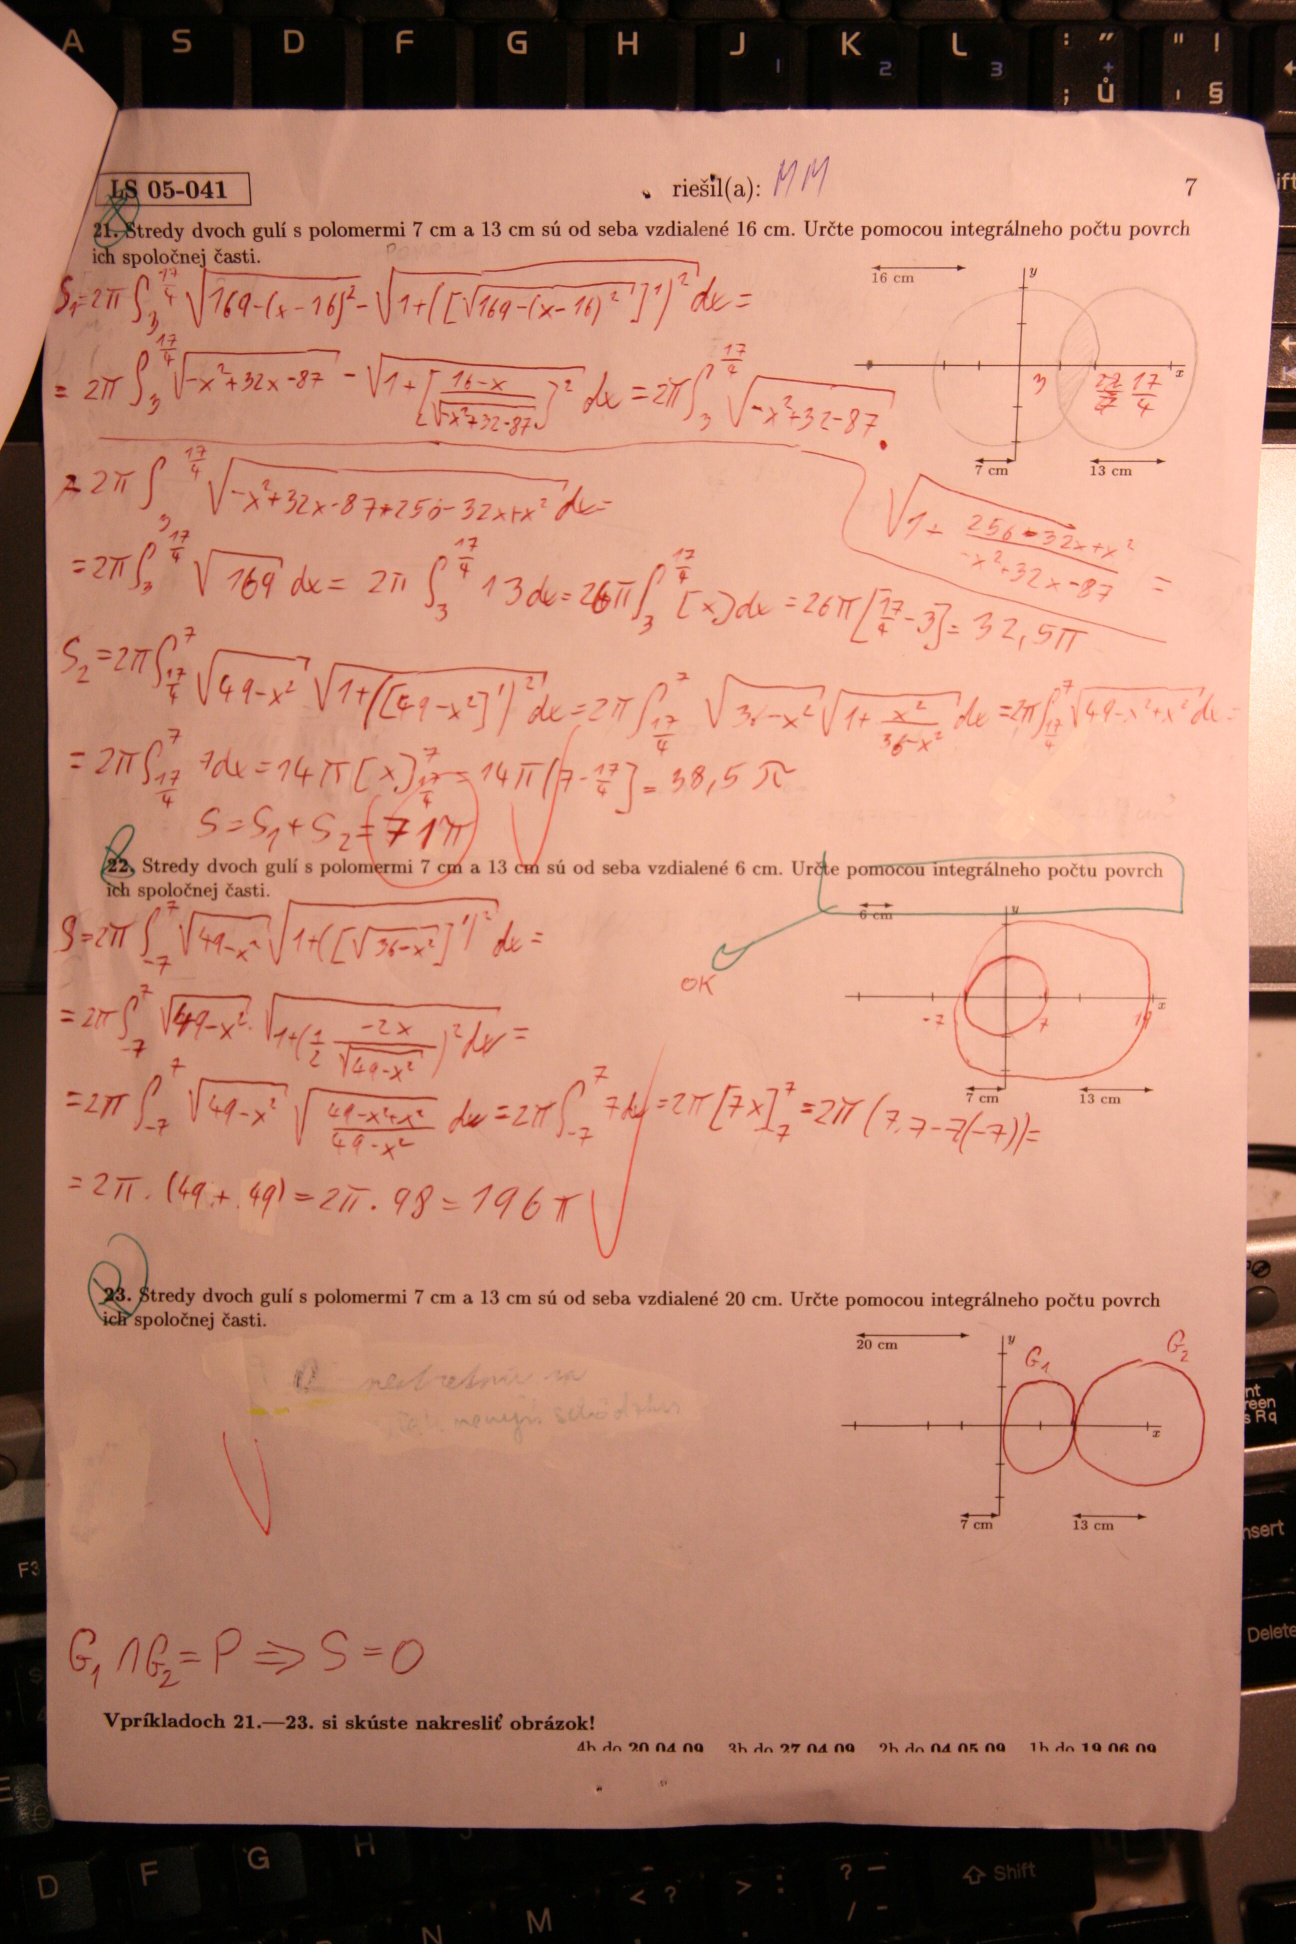 A S D F G H J K L : " " |
1 2 3 + ; ů ı §
LS 05-041 riešil(a): MM 7
21. Stredy dvoch gulí s polomermi 7 cm a 13 cm sú od seba vzdialené 16 cm. Určte pomocou integrálneho počtu povrch
ich spoločnej časti.
16 cm
y
x
3 17/4
7 cm 13 cm
S₁=2π ∫₃^(17/4) √(169-(x-16)²) - √(1+([√(169-(x-16)²)]')²) dx =
= 2π ∫₃^(17/4) √(-x²+32x-87) - √(1+[(16-x)/√(-x²+32-87)]²) dx = 2π ∫₃^(17/4) √(-x²+32-87) .
√(1+ (256-32x+x²)/(-x²+32x-87)) =
= 2π ∫₃^(17/4) √(-x²+32x-87+256-32x+x²) dx =
= 2π ∫₃^(17/4) √169 dx = 2π ∫₃^(17/4) 13 dx = 26π ∫₃^(17/4) [x] dx = 26π [17/4 - 3] = 32,5π
S₂ = 2π ∫_(17/4)^7 √(49-x²) √(1+([49-x²]')²) dx = 2π ∫_(17/4)^7 √(36-x²) √(1+ x²/(36-x²)) dx = 2π ∫_(17/4)^7 √(49-x²+x²) dx =
= 2π ∫_(17/4)^7 7dx = 14π [x]_(17/4)^7 = 14π [7-17/4] = 38,5 π
S = S₁ + S₂ = 71π
22. Stredy dvoch gulí s polomermi 7 cm a 13 cm sú od seba vzdialené 6 cm. Určte pomocou integrálneho počtu povrch
ich spoločnej časti.
6 cm
y
OK
x
-7 7 19
7 cm 13 cm
S = 2π ∫₋₇^7 √(49-x²) √(1+([√(36-x²)]')²) dx =
= 2π ∫₋₇^7 √(49-x²) · √(1+(1/2 (-2x)/√(49-x²))²) dx =
= 2π ∫₋₇^7 √(49-x²) √((49-x²+x²)/(49-x²)) dx = 2π ∫₋₇^7 7dx = 2π [7x]₋₇^7 = 2π (7.7-7(-7)) =
= 2π . (49 + 49) = 2π . 98 = 196 π
23. Stredy dvoch gulí s polomermi 7 cm a 13 cm sú od seba vzdialené 20 cm. Určte pomocou integrálneho počtu povrch
ich spoločnej časti.
20 cm
y
G₁ G₂
x
7 cm 13 cm
G₁ ∩ G₂ = P ⇒ S = 0
Vpríkladoch 21.—23. si skúste nakresliť obrázok!
4h do 20 04 09 3h do 27 04 09 2h do 04 05 09 1h do 19 06 09
F3
Delete
D F G H
N M < ? > : ? – / – Shift